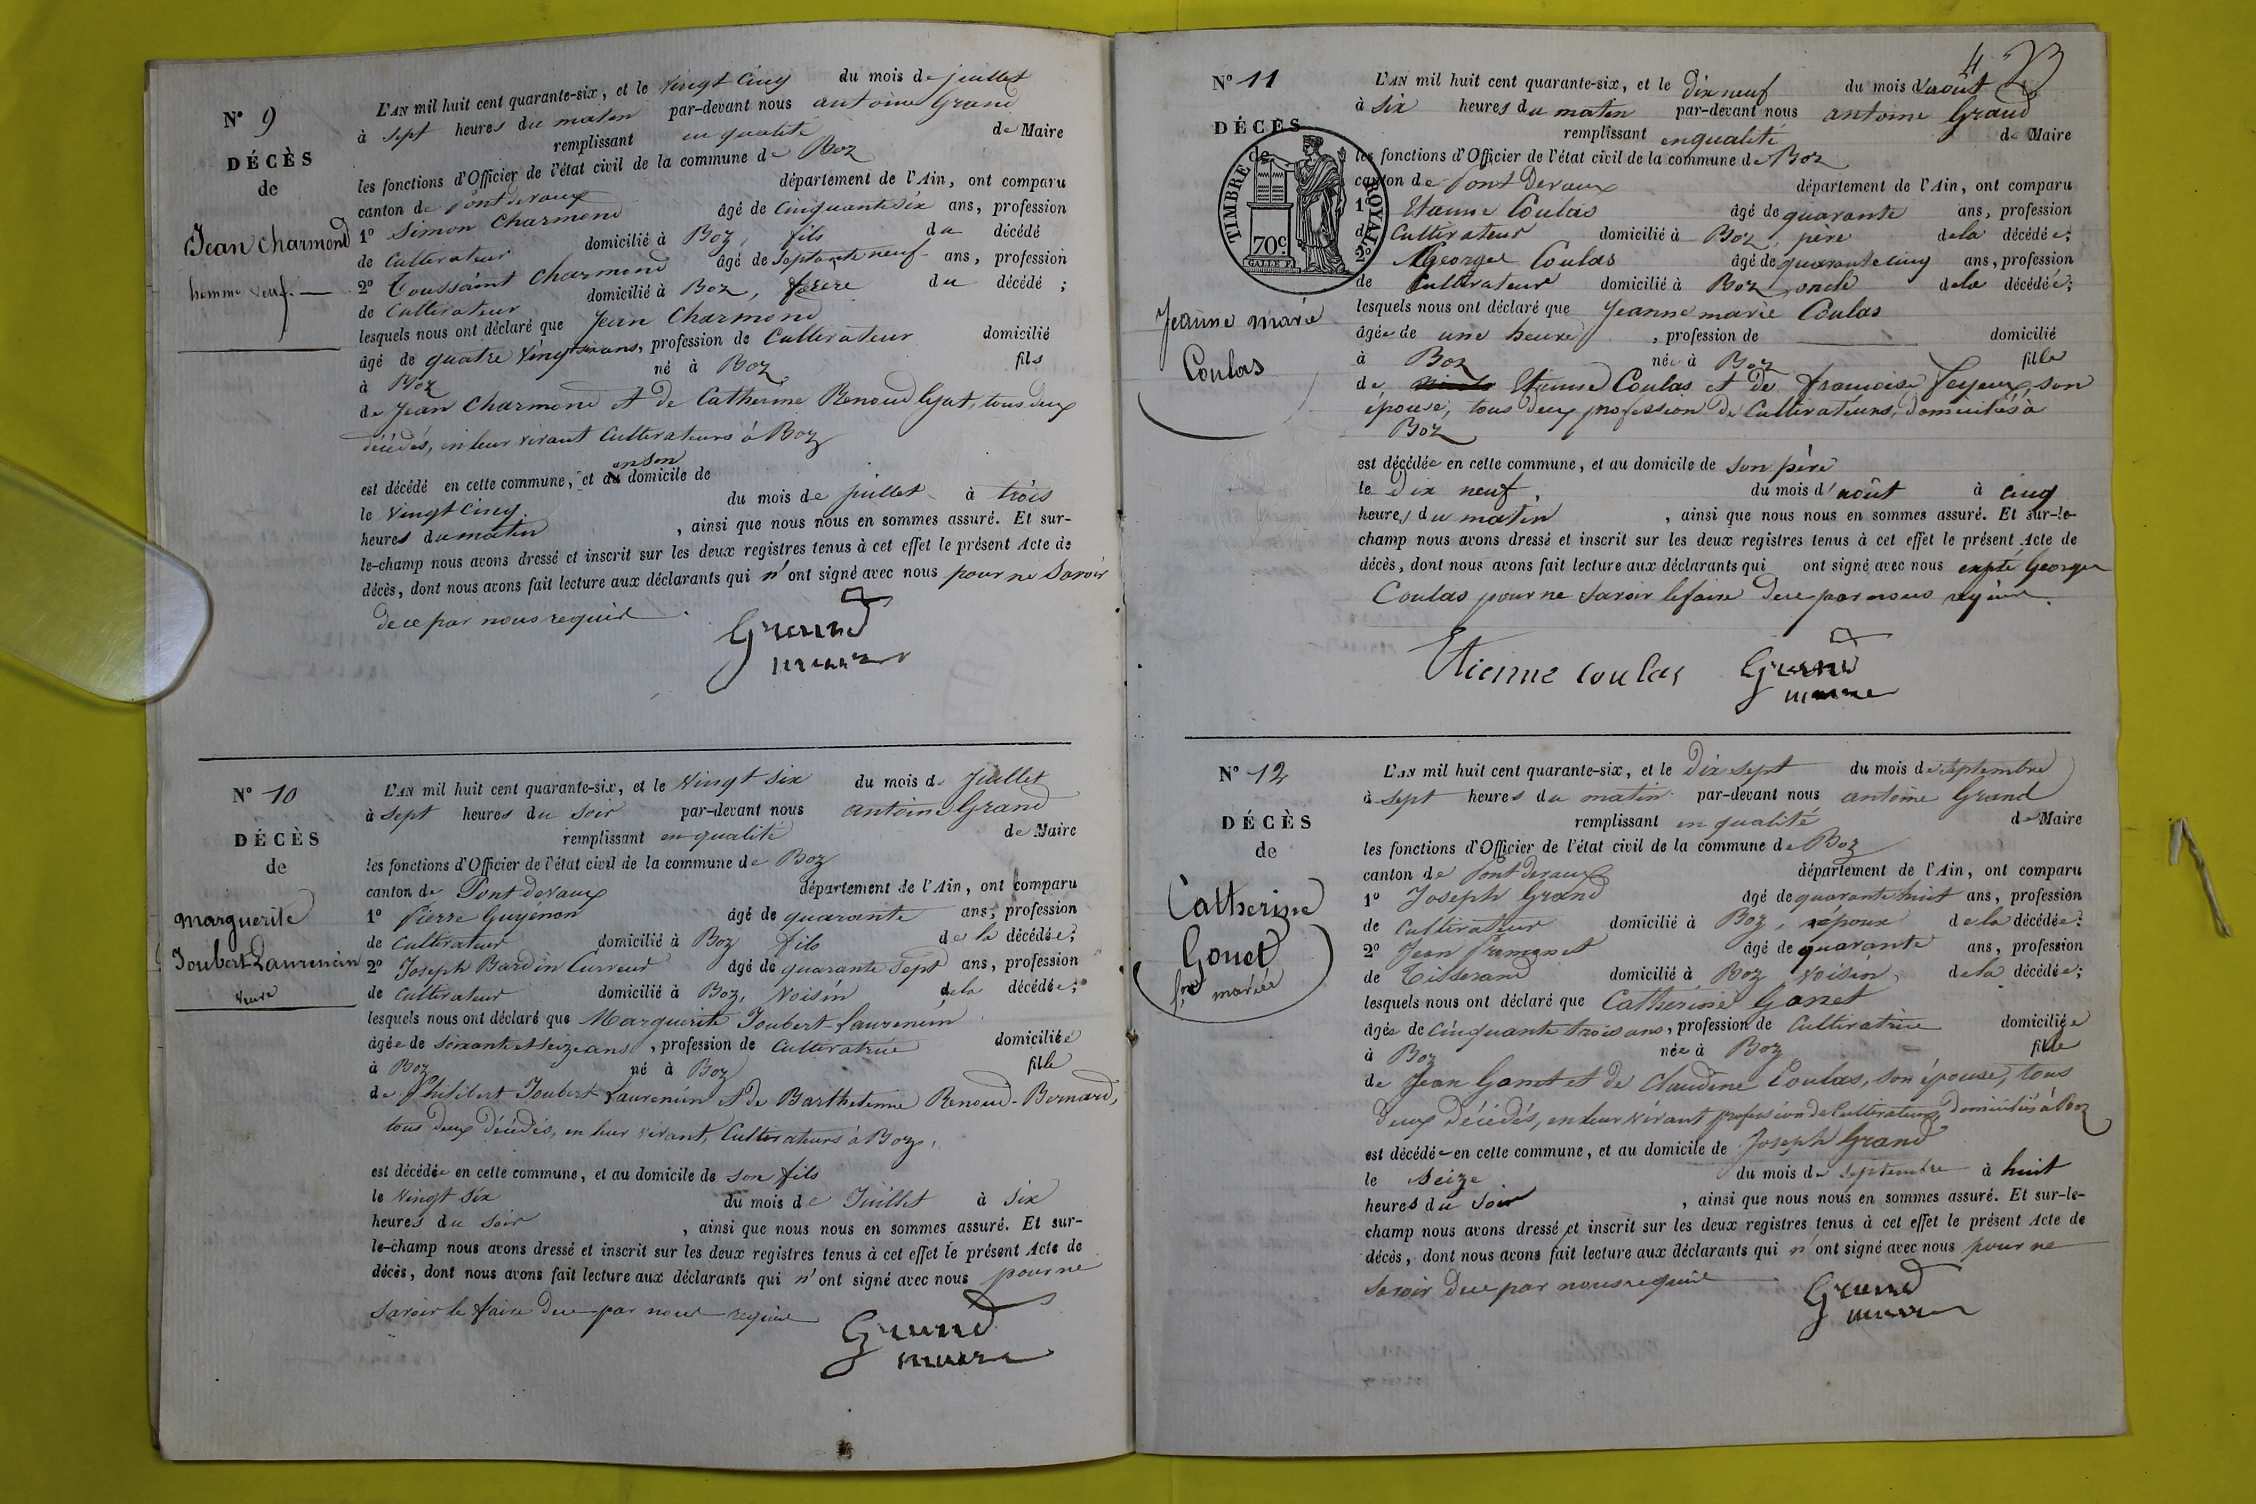 N° 9
DÉCÈS
de
Jean Charmond
homme veuf
L'AN mil huit cent quarante-six, et le vingt cinq du mois de juillet
à sept heures du matin par-devant nous antoine Grand
remplissant en qualité de Maire
les fonctions d'Officier de l'état civil de la commune de Boz
canton de pont devaux département de l'Ain, ont comparu
1° Simon Charmond âgé de Cinquante six ans, profession
de Cultivateur domicilié à Boz, fils du décédé
2° Toussaint Charmond âgé de Septante neuf ans, profession
de Cultivateur domicilié à Boz, frère du décédé ;
lesquels nous ont déclaré que Jean Charmond
âgé de quatre vingt ans, profession de Cultivateur domicilié
à Boz né à Boz fils
de Jean Charmond et de Catherine Renoud lyat, tous deux
décédés, en leur vivant Cultivateurs à Boz
est décédé en cette commune, et au en son domicile de
le vingt cinq du mois de juillet à trois
heures du matin , ainsi que nous nous en sommes assuré. Et sur-
le-champ nous avons dressé et inscrit sur les deux registres tenus à cet effet le présent Acte de
décès, dont nous avons fait lecture aux déclarants qui n'ont signé avec nous pour ne Savoir
de ce par nous requis
Grand
maire
N° 10
DÉCÈS
de
Marguerite
Joubert Laurencin
veuve
L'AN mil huit cent quarante-six, et le vingt six du mois de Juillet
à sept heures du soir par-devant nous antoine Grand
remplissant en qualité de Maire
les fonctions d'Officier de l'état civil de la commune de Boz
canton de Pont devaux département de l'Ain, ont comparu
1° Pierre Guyenon âgé de quarante ans, profession
de Cultivateur domicilié à Boz fils de la décédée ;
2° Joseph Bardin Curveur âgé de quarante Sept ans, profession
de Cultivateur domicilié à Boz, Voisin de la décédée ;
lesquels nous ont déclaré que Marguerite Joubert-Laurencin
âgée de soixante et seize ans, profession de Cultivatrice domiciliée
à Boz né à Boz fille
de Philibert Joubert Laurencin et de Barthelemie Renoud-Bernard,
tous deux décédés, en leur vivant, Cultivateurs à Boz,
est décédée en cette commune, et au domicile de son fils
le vingt six du mois de Juillet à six
heures du soir , ainsi que nous nous en sommes assuré. Et sur-
le-champ nous avons dressé et inscrit sur les deux registres tenus à cet effet le présent Acte de
décès, dont nous avons fait lecture aux déclarants qui n'ont signé avec nous pour ne
savoir le faire de ce par nous requis
Grand
maire
4
N° 11
DÉCÈS
de
TIMBRE ROYAL
70c.
Jeanne marie
Coulas
L'AN mil huit cent quarante-six, et le dix neuf du mois d'août
à six heures du matin par-devant nous antoine Grand
remplissant en qualité de Maire
les fonctions d'Officier de l'état civil de la commune de Boz
canton de Pont Devaux département de l'Ain, ont comparu
1° Etienne Coulas âgé de quarante ans, profession
de Cultivateur domicilié à Boz, père de la décédée ;
2° George Coulas âgé de quarante cinq ans, profession
de Cultivateur domicilié à Boz, oncle de la décédée ;
lesquels nous ont déclaré que Jeanne marie Coulas
âgée de une heure , profession de domicilié
à Boz née à Boz fille
de Etienne Coulas et de françoise feyeux, son
épouse, tous deux profession de Cultivateurs, domiciliés à
Boz
est décédée en cette commune, et au domicile de son père
le dix neuf, du mois d'août à cinq
heures du matin , ainsi que nous nous en sommes assuré. Et sur-le-
champ nous avons dressé et inscrit sur les deux registres tenus à cet effet le présent Acte de
décès, dont nous avons fait lecture aux déclarants qui ont signé avec nous expté George
Coulas pour ne Savoir le faire de ce par nous requis.
Etienne coulas Grand
maire
N° 12
DÉCÈS
de
Catherine
Gonet
fme mariée
L'AN mil huit cent quarante-six, et le dix sept du mois de Septembre
à sept heures du matin par-devant nous antoine Grand
remplissant en qualité de Maire
les fonctions d'Officier de l'état civil de la commune de Boz
canton de pont devaux département de l'Ain, ont comparu
1° Joseph Grand âgé de quarante huit ans, profession
de Cultivateur domicilié à Boz, époux de la décédée ;
2° Jean âgé de quarante ans, profession
de Tisserand domicilié à Boz Voisin, de la décédée ;
lesquels nous ont déclaré que Catherine Gonet
âgée de cinquante trois ans, profession de Cultivatrice domiciliée
à Boz née à Boz fille
de Jean Gonet et de Claudine Coulas, son épouse, tous
deux décédés, en leur vivant profession de Cultivateurs, domiciliés à Boz
est décédée en cette commune, et au domicile de Joseph Grand
le seize du mois de septembre à huit
heures du soir , ainsi que nous nous en sommes assuré. Et sur-le-
champ nous avons dressé et inscrit sur les deux registres tenus à cet effet le présent Acte de
décès, dont nous avons fait lecture aux déclarants qui n'ont signé avec nous pour ne
savoir de ce par nous requis
Grand
maire